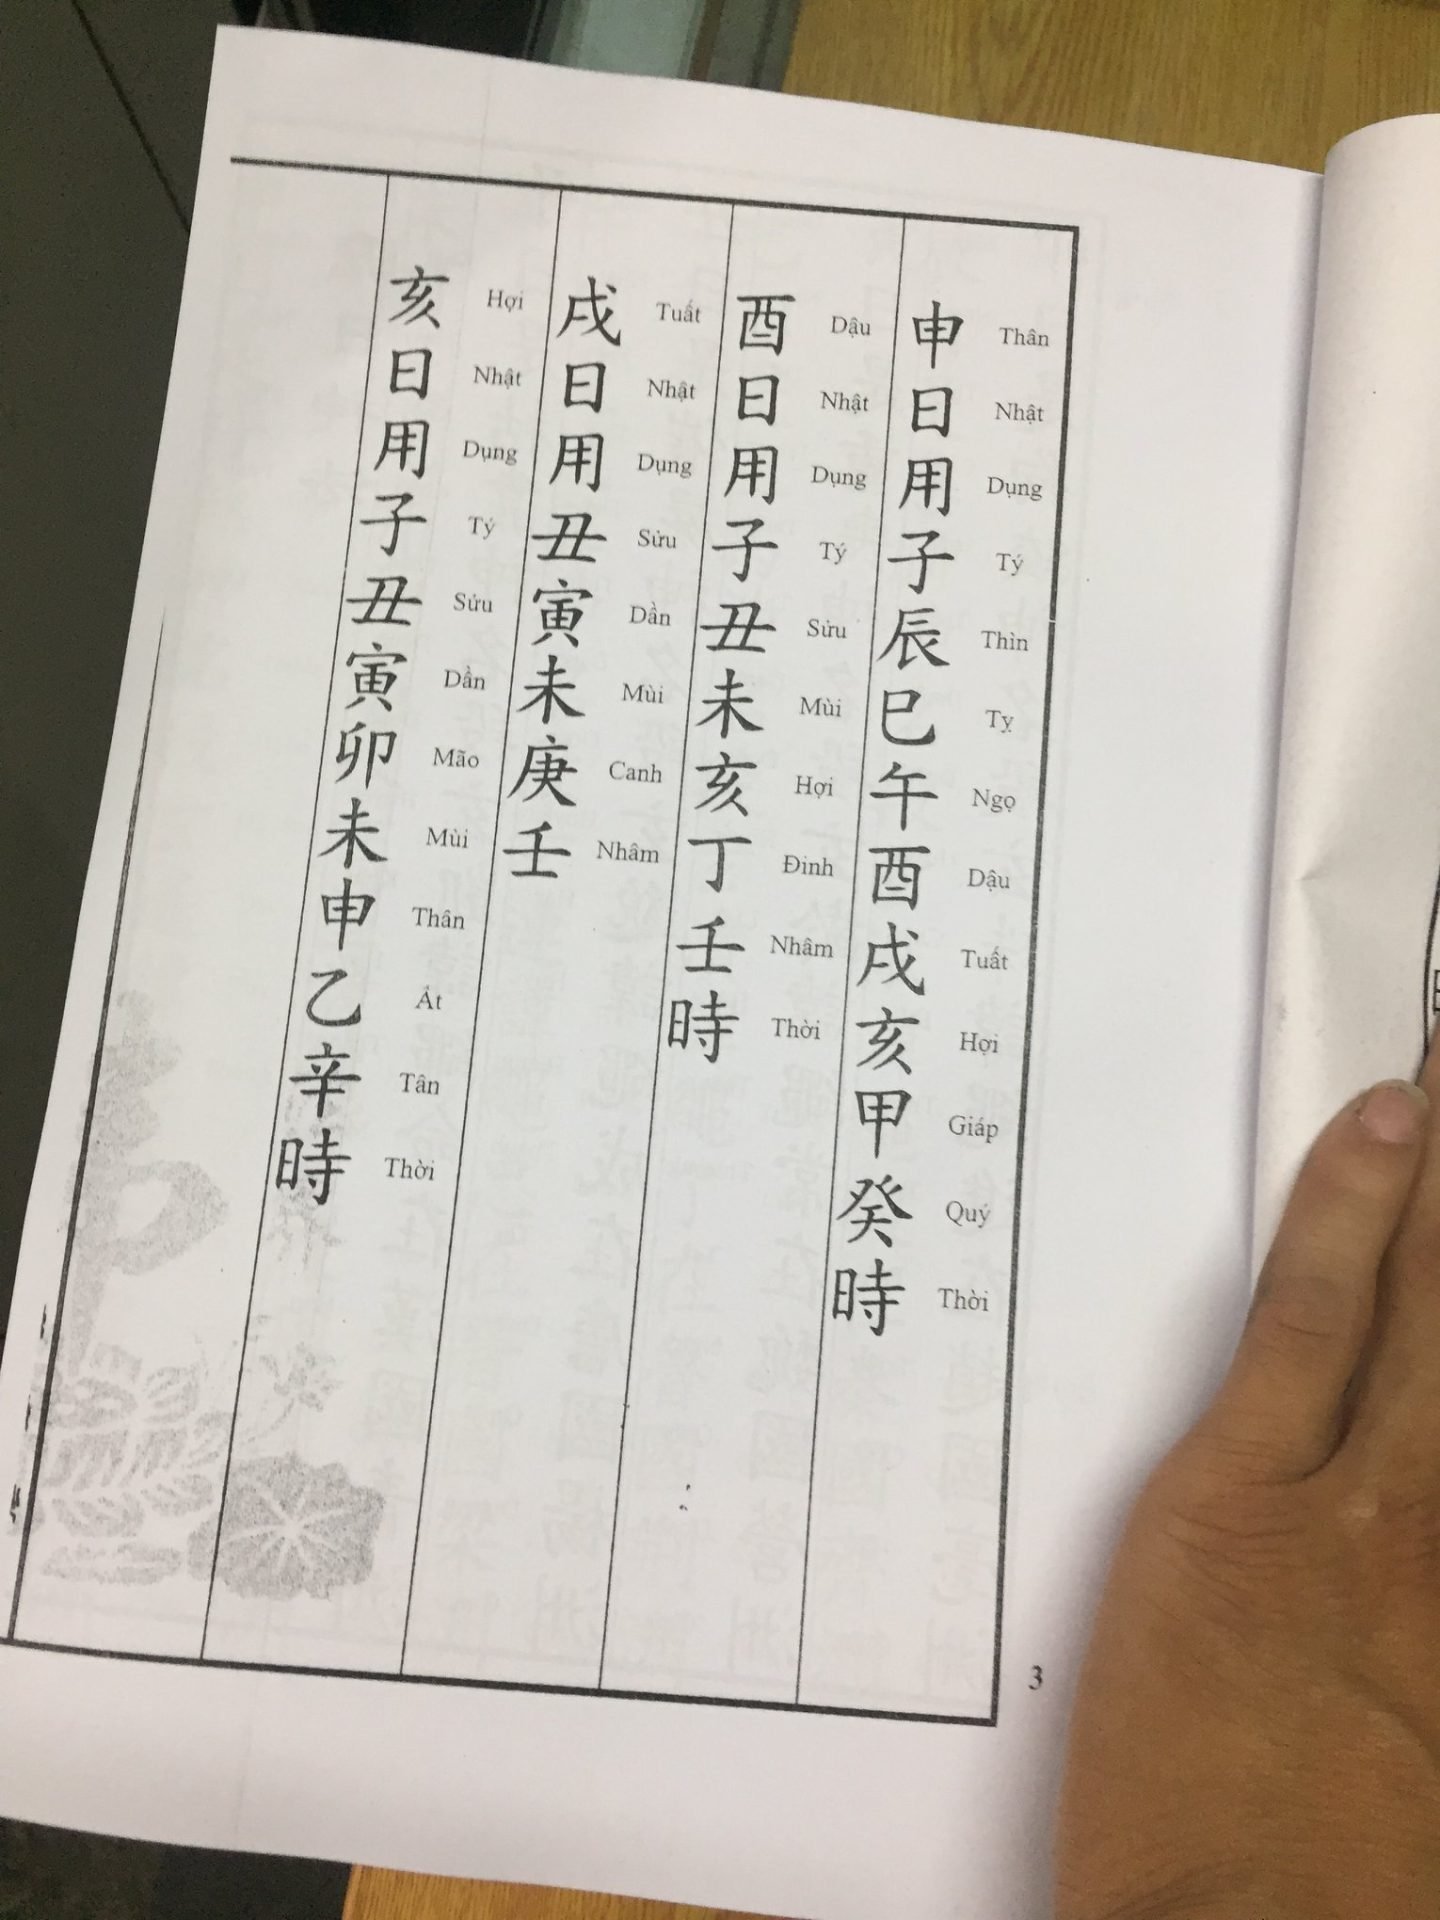 申日用子辰巳午酉戌亥甲癸時
Thân Nhật Dụng Tý Thìn Tỵ Ngọ Dậu Tuất Hợi Giáp Quý Thời
酉日用子丑未亥丁壬時
Dậu Nhật Dụng Tý Sửu Mùi Hợi Đinh Nhâm Thời
戌日用丑寅未庚壬
Tuất Nhật Dụng Sửu Dần Mùi Canh Nhâm
亥日用子丑寅卯未申乙辛時
Hợi Nhật Dụng Tý Sửu Dần Mão Mùi Thân Ất Tân Thời
3